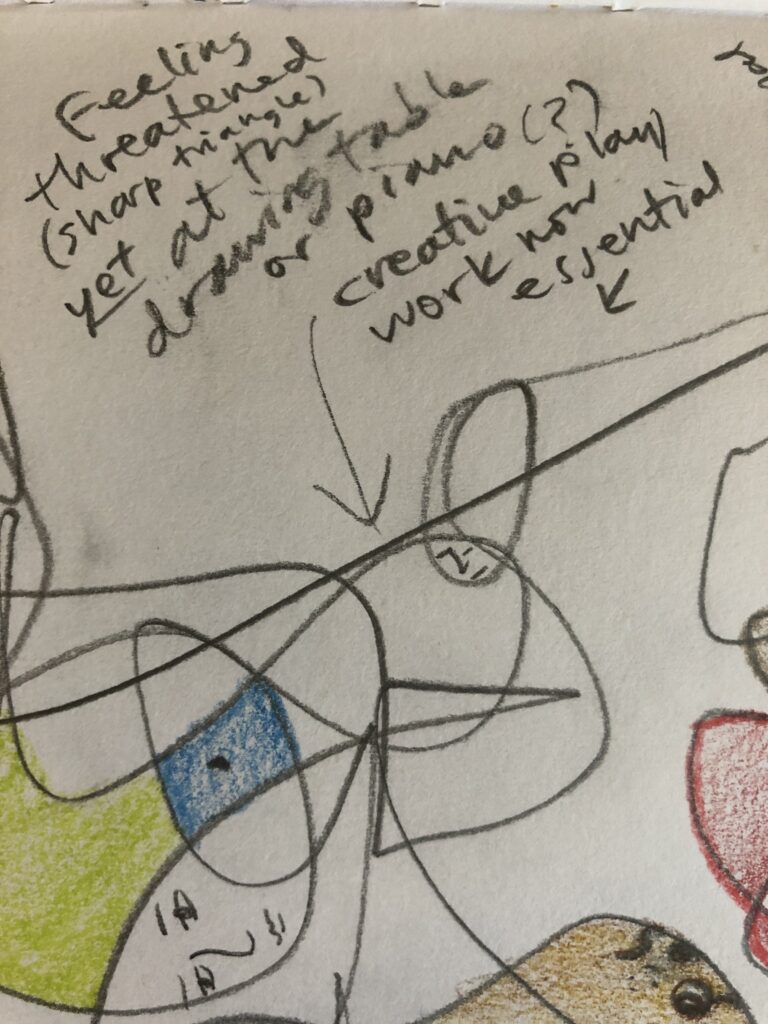 Feeling
threatened
(sharp triangle)
yet at the
drawing table
or piano (?)
creative play/
work now
essential